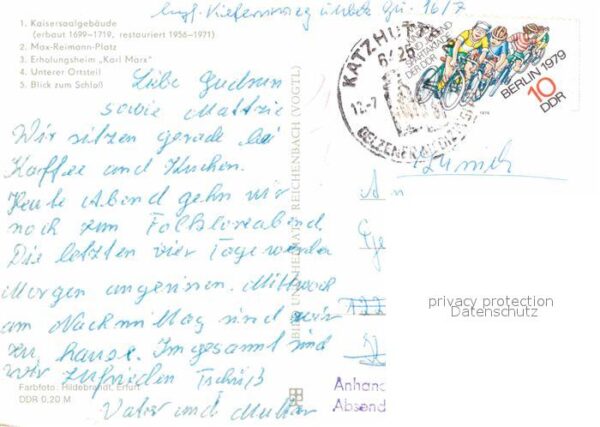 1. Kaisersaalgebäude
(erbaut 1699–1719, restauriert 1956–1971)
2. Max-Reimann-Platz
3. Erholungsheim „Karl Marx"
4. Unterer Ortsteil
5. Blick zum Schloß
Liebe Gudrun
sowie
Wir sitzen gerade bei
Kaffee und Kuchen.
Heute Abend gehn wir
noch zum Folkloreabend
Die letzten vier Tage werden
Morgen angerissen. Mittwoch
am Nachmittag sind wir
zu hause. Im gesamt sind
wir zufrieden Tschüß
Vater und Mutter
Farbfoto: Hildebrandt, Erfurt
DDR 0,20 M
BILD UND HEIMAT REICHENBACH (VOGTL)
KATZHÜTTE
BERLIN 1979
10
DDR
privacy protection
Datenschutz
Anhand
Absend